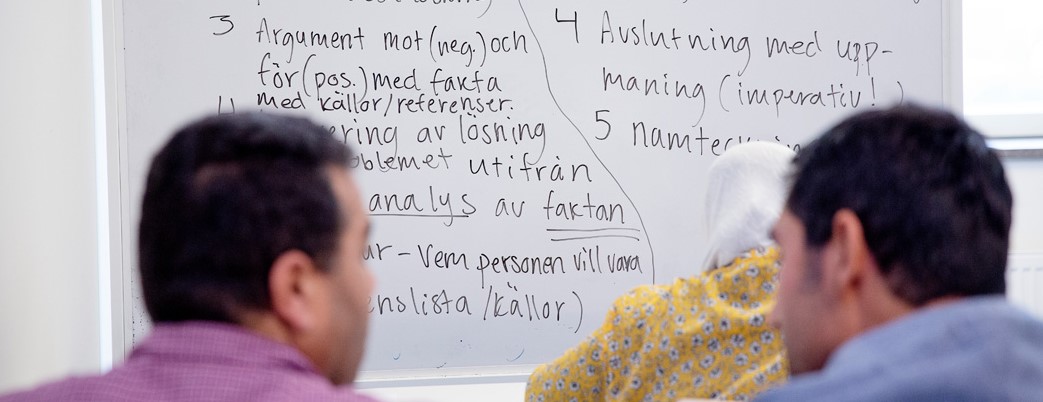 3 Argument mot (neg.) och
för (pos.) med fakta
med källor/referenser.
av lösning
utifrån
analys av faktan
- Vem personen vill vara
/källor)
4 Avslutning med upp-
maning (imperativ!)
5